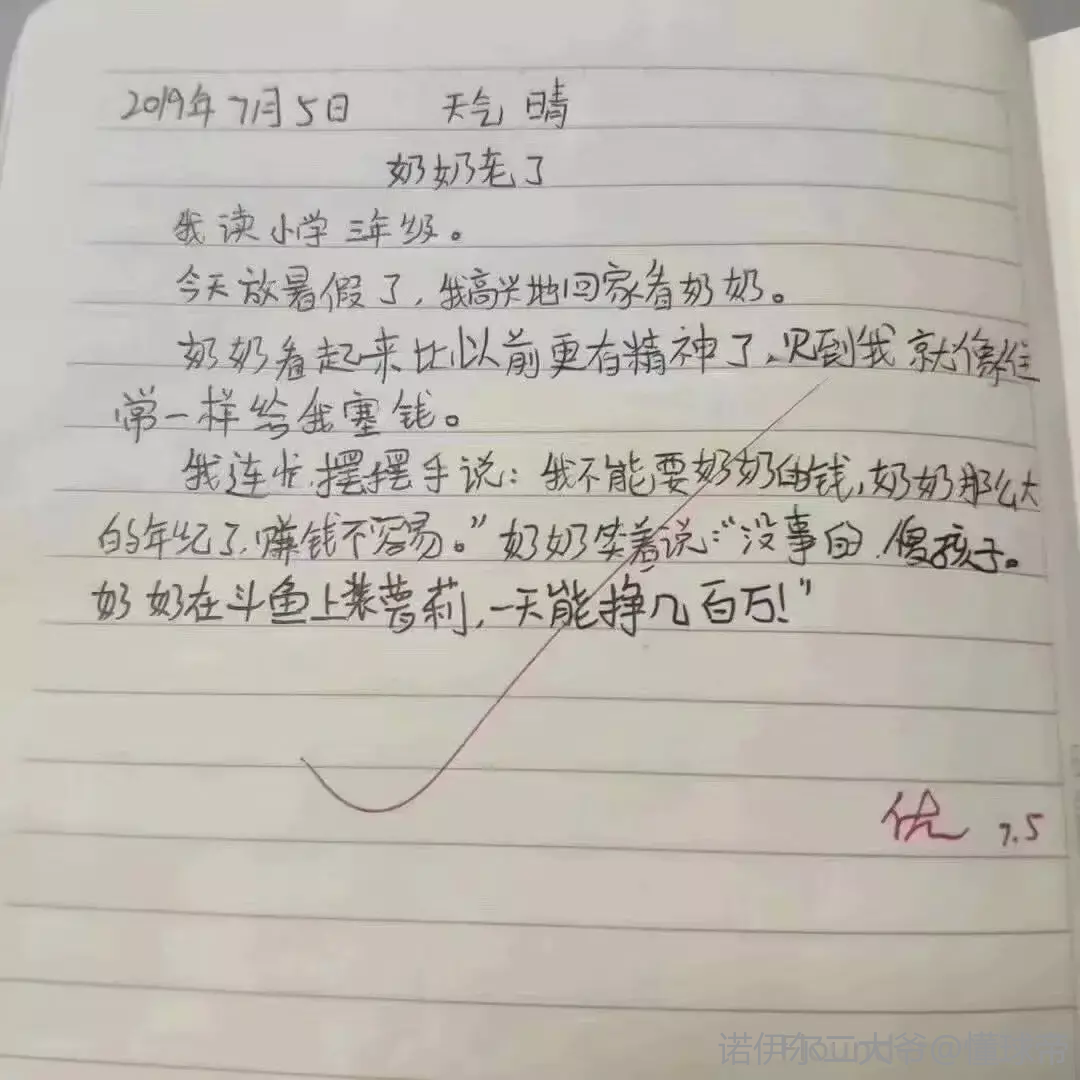 2019年7月5日 天气 晴
奶奶老了
我读小学三年级。
今天放暑假了,我高兴地回家看奶奶。
奶奶看起来比以前更有精神了,见到我就像往
常一样给我塞钱。
我连忙摆摆手说:我不能要奶奶的钱,奶奶那么大
的年纪了,赚钱不容易。”奶奶笑着说:“没事的,傻孩子。
奶奶在斗鱼上装萝莉,一天能挣几百万!”
优 7.5